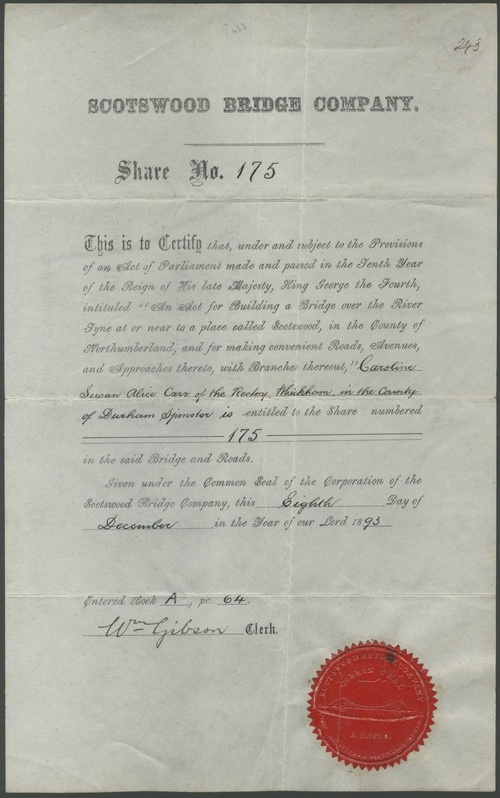 243
SCOTSWOOD BRIDGE COMPANY.
Share No. 175
This is to Certify that, under and subject to the Provisions
of an Act of Parliament made and passed in the Tenth Year
of the Reign of His late Majesty, King George the Fourth,
intituled "An Act for Building a Bridge over the River
Tyne at or near to a place called Scotswood, in the County of
Northumberland, and for making convenient Roads, Avenues,
and Approaches thereto, with Branches thereout," Caroline
Susan Alice Carr of the Rectory, Whickham, in the County
of Durham Spinster is entitled to the Share numbered
175
in the said Bridge and Roads.
Given under the Common Seal of the Corporation of the
Scotswood Bridge Company, this Eighth Day of
December in the Year of our Lord 1893
Entered Book A, pe. 64.
Wm Gibson Clerk.
SCOTSWOOD BRIDGE COMPANY
COMMON SEAL